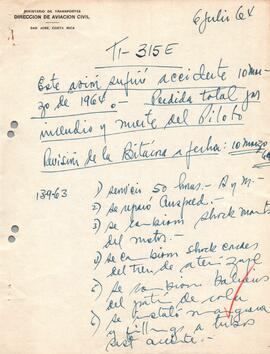 MINISTERIO DE TRANSPORTES
DIRECCION DE AVIACION CIVIL
SAN JOSE, COSTA RICA
6 Julio 64
TI-315E
Este avión sufrió accidente 10 mar-
zo de 1964.- Perdida total por
incendio y muerte del Piloto
Revisión de la Bitácora a fecha: 10 marzo 64
139-63
1) servicio 50 horas.- A y M.-
2) se reparó
3) se cambiaron shock mounts
del motor.-
4) se cambiaron shock cords
del tren de aterrizaje
5) se cambiaron
del patín de cola
6) se instaló manguera
y fillings a tubos
sist aceite.-